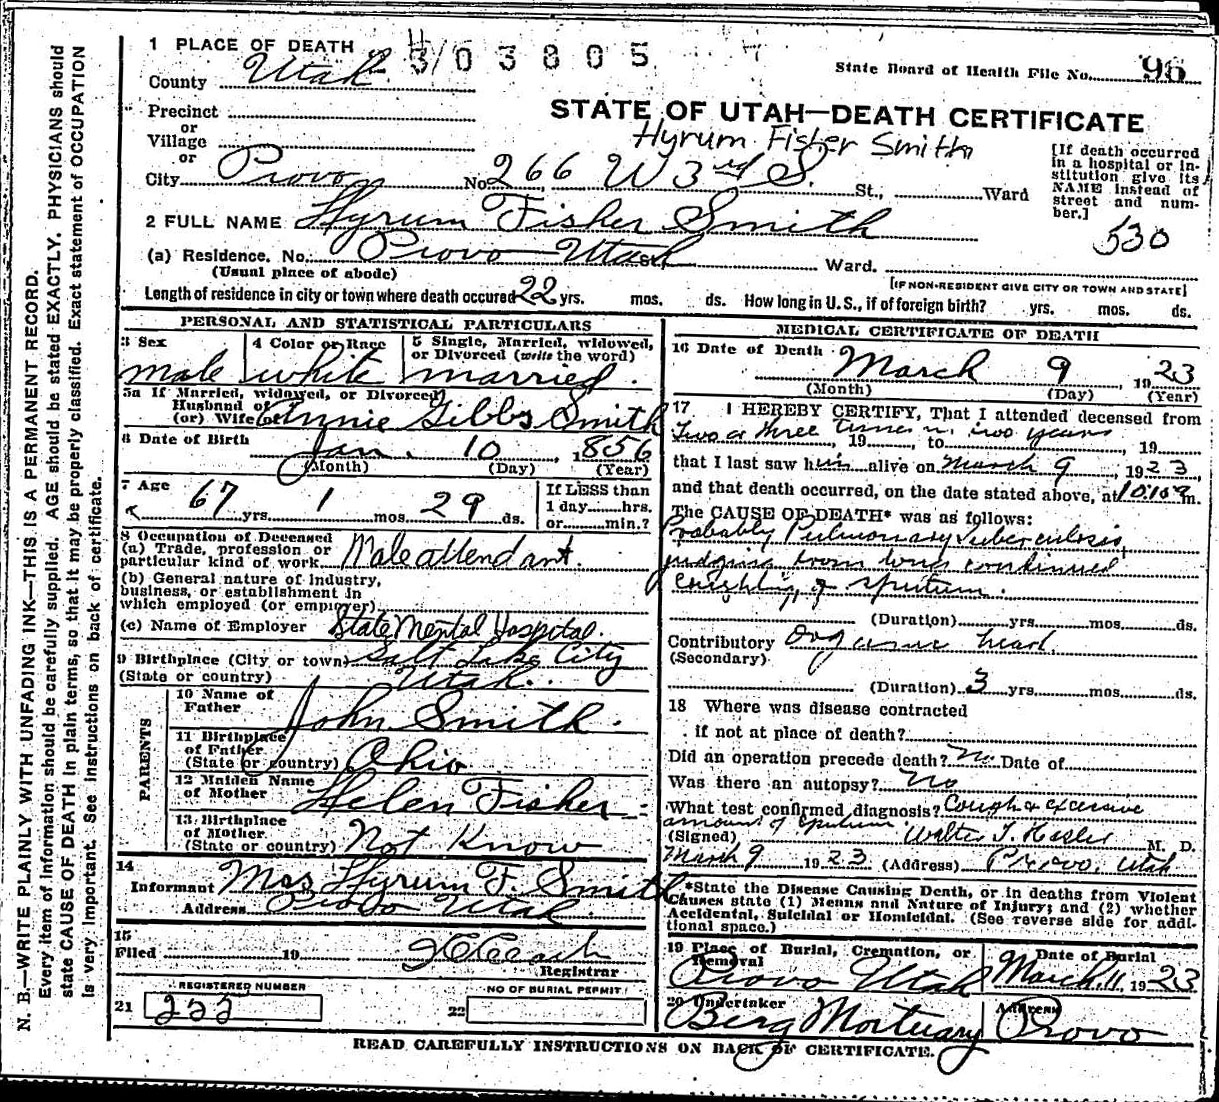 N. B.—WRITE PLAINLY WITH UNFADING INK—THIS IS A PERMANENT RECORD.
Every item of information should be carefully supplied. AGE should be stated EXACTLY. PHYSICIANS should
state CAUSE OF DEATH in plain terms, so that it may be properly classified. Exact statement of OCCUPATION
is very important. See instructions on back of certificate.
1 PLACE OF DEATH
303805
State Board of Health File No. 96
County Utah
STATE OF UTAH—DEATH CERTIFICATE
Precinct
or
Village
or
Hyrum Fisher Smith
[If death occurred in a hospital or institution give its NAME instead of street and number.]
City Provo No. 266 W 3rd S. St., Ward
2 FULL NAME Hyrum Fisher Smith
530
(a) Residence. No. Provo Utah St., Ward.
(Usual place of abode)
[IF NON-RESIDENT GIVE CITY OR TOWN AND STATE]
Length of residence in city or town where death occured 22 yrs. mos. ds. How long in U.S., if of foreign birth? yrs. mos. ds.
PERSONAL AND STATISTICAL PARTICULARS
3 Sex
male
4 Color or Race
white
5 Single, Married, widowed, or Divorced (write the word)
married.
5a If Married, widowed, or Divorced
Husband of
(or) Wife of Annie Gibbs Smith
6 Date of Birth Jan. 10, 1856
(Month) (Day) (Year)
7 Age 67 yrs. 1 mos. 29 ds.
If LESS than
1 day hrs.
or min.?
8 Occupation of Deceased
(a) Trade, profession or
particular kind of work Male attendant.
(b) General nature of Industry,
business, or establishment in
which employed (or employer)
(c) Name of Employer State Mental Hospital.
9 Birthplace (City or town) Salt Lake City
(State or country) Utah.
PARENTS
10 Name of
Father John Smith.
11 Birthplace
of Father
(State or country) Ohio
12 Maiden Name
of Mother Helen Fisher
13 Birthplace
of Mother
(State or country) Not Know
14
Informant Mrs Hyrum F. Smith
Address Provo Utah.
15
Filed 19
Registrar
REGISTERED NUMBER
21
NO OF BURIAL PERMIT
22
MEDICAL CERTIFICATE OF DEATH
16 Date of Death March 9 1923
(Month) (Day) (Year)
17 I HEREBY CERTIFY, That I attended deceased from
Two or three times in two years, 19, to 19
that I last saw him alive on March 9, 1923,
and that death occurred, on the date stated above, at m.
The CAUSE OF DEATH* was as follows:
Probably Pulmonary Tuberculosis,
judging from long continued
coughing & sputum.
(Duration) yrs. mos. ds.
Contributory Organic heart.
(Secondary)
(Duration) 3 yrs. mos. ds.
18 Where was disease contracted
if not at place of death?
Did an operation precede death? No Date of
Was there an autopsy? No
What test confirmed diagnosis? Cough & excessive
amount of sputum
(Signed) Walter T. Hasler M. D.
March 9 1923 (Address) Provo, Utah
*State the Disease Causing Death, or in deaths from Violent
Causes state (1) Means and Nature of Injury; and (2) whether
Accidental, Suicidal or Homicidal. (See reverse side for additional space.)
19 Place of Burial, Cremation, or Removal
Provo Utah
Date of Burial
March 11, 1923
20 Undertaker
Berg Mortuary
Address
Provo
READ CAREFULLY INSTRUCTIONS ON BACK OF CERTIFICATE.